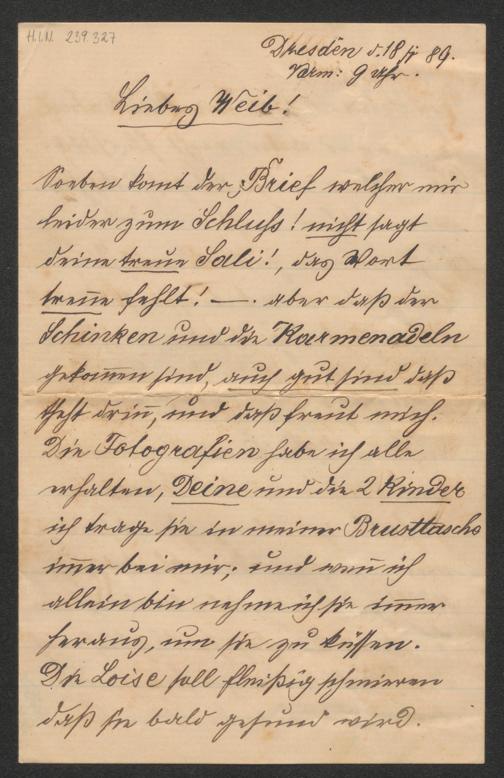 H.I.N. 239.327
Dresden d. 18/ 89.
Vorm: 9 Uhr.
Liebes Weib!
Soeben komt der Brief welcher mir
leider zum Schluß! nicht sagt
deine treue Sali!, das Wort
treue fehlt! —. aber daß der
Schinken und die Karmenadeln
gekomen sind, auch gut sind daß
steht drin, und daß freut mich.
Die Fotografien habe ich alle
erhalten, Deine und die 2 Kinder
ich trage sie in meiner Brusttasche
imer bei mir; und wen ich
allein bin nehme ich sie imer
heraus, um sie zu küssen.
Die Loise soll fleißig schmieren
daß sie bald gesund wird.